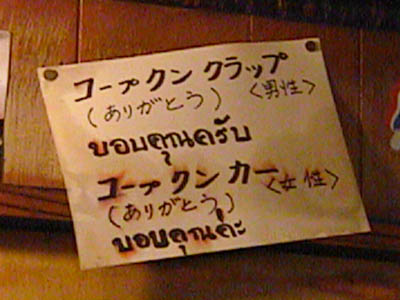 コープ クン クラップ
(ありがとう) <男性>
ขอบคุณครับ
コープ クン カー
(ありがとう) <女性>
ขอบคุณค่ะ